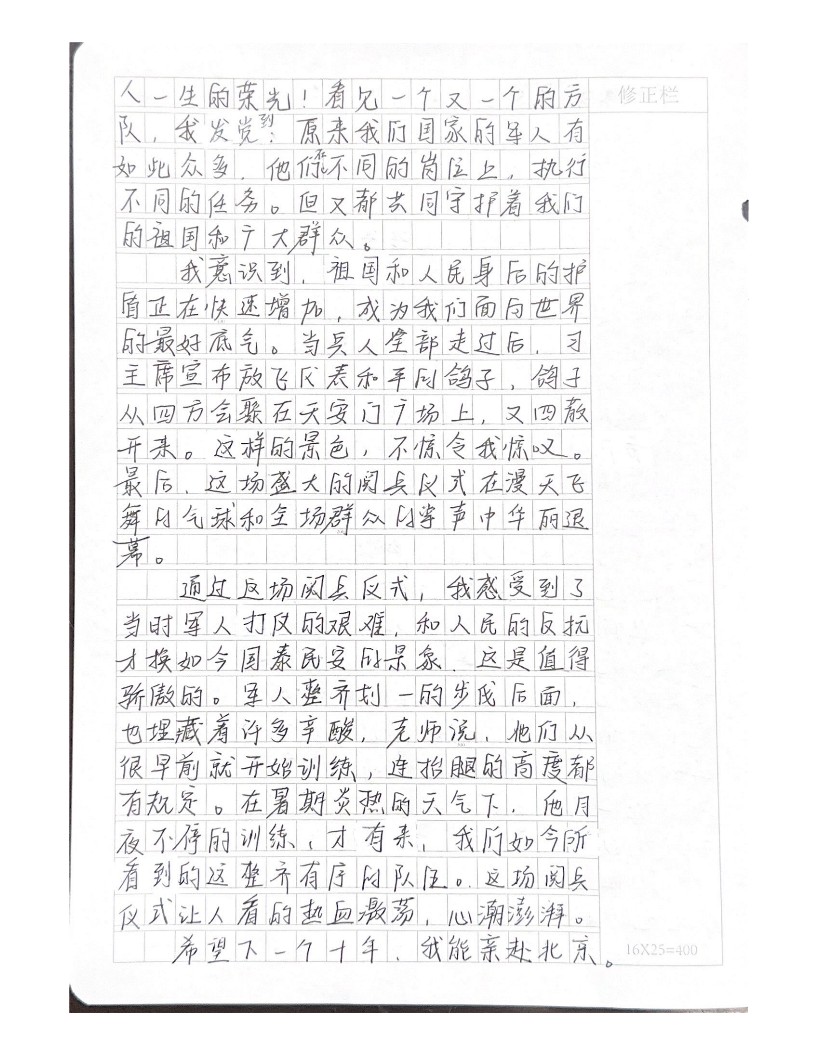 人一生的荣光！看见一个又一个的方
修正栏
队，我发觉到：原来我们国家的军人有
如此众多，他们在不同的岗位上，执行
不同的任务。但又都共同守护着我们
的祖国和广大群众。
我意识到，祖国和人民身后的护
盾正在快速增加，成为我们面向世界
的最好底气。当兵人全部走过后，习
主席宣布放飞代表和平的鸽子，鸽子
从四方会聚在天安门广场上，又四散
开来。这样的景色，不惊令我惊叹。
最后，这场盛大的阅兵仪式在漫天飞
舞的气球和全场群众的掌声中华丽退
幕。
通过这场阅兵仪式，我感受到了
当时军人打仗的艰难，和人民的反抗
才换如今国泰民安的景象，这是值得
骄傲的。军人整齐划一的步伐后面，
也埋藏着许多辛酸，老师说，他们从
很早前就开始训练，连抬腿的高度都
有规定。在暑期炎热的天气下，他月
夜不停的训练，才有来，我们如今所
看到的这整齐有序的队伍。这场阅兵
仪式让人看的热血激荡，心潮澎湃。
希望下一个十年，我能亲赴北京。
16X25=400